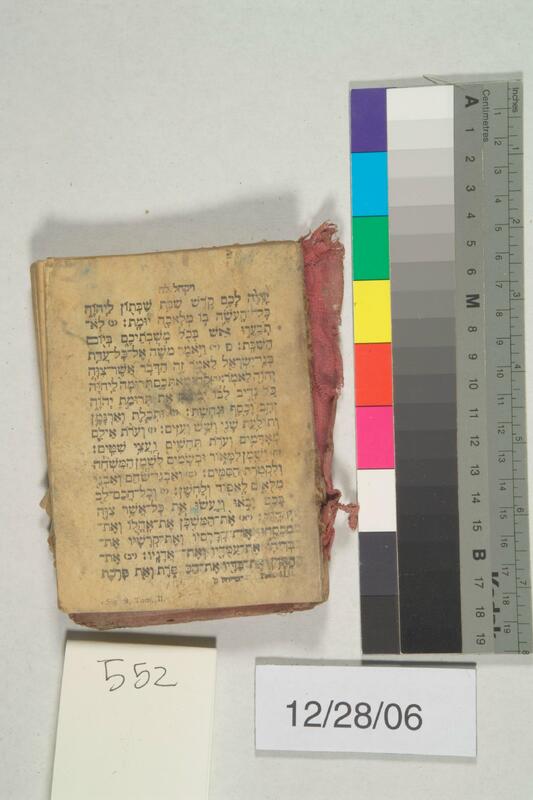 ויקהל לה
יִהְיֶה לָכֶם קֹדֶשׁ שַׁבַּת שַׁבָּתוֹן לַיהוָֹה
כָּל־הָעֹשֶׂה בוֹ מְלָאכָה יוּמָת׃ (ג) לֹא־
תְבַעֲרוּ אֵשׁ בְּכֹל מֹשְׁבֹתֵיכֶם בְּיוֹם
הַשַּׁבָּת׃ פ (ד) וַיֹּאמֶר מֹשֶׁה אֶל־כָּל־עֲדַת
בְּנֵי־יִשְׂרָאֵל לֵאמֹר זֶה הַדָּבָר אֲשֶׁר־צִוָּה
יְהוָֹה לֵאמֹר׃ אִתְּכֶם תְּרוּמָה לַיהוָֹה
כֹּל נְדִיב לִבּוֹ אֵת תְּרוּמַת יְהוָֹה
זָהָב וָכֶסֶף וּנְחֹשֶׁת׃ (ו) וּתְכֵלֶת וְאַרְגָּמָן
וְתוֹלַעַת שָׁנִי וְשֵׁשׁ וְעִזִּים׃ (ז) וְעֹרֹת אֵילִם
מְאָדָּמִים וְעֹרֹת תְּחָשִׁים וַעֲצֵי שִׁטִּים׃
וְשֶׁמֶן לַמָּאוֹר וּבְשָׂמִים לְשֶׁמֶן הַמִּשְׁחָה
וְלִקְטֹרֶת הַסַּמִּים׃ (ט) וְאַבְנֵי־שֹׁהַם וְאַבְנֵי
מִלֻּאִים לָאֵפוֹד וְלַחֹשֶׁן׃ (י) וְכָל־חֲכַם־לֵב
בָּכֶם יָבֹאוּ וְיַעֲשׂוּ אֵת כָּל־אֲשֶׁר צִוָּה
יְהוָֹה׃ (יא) אֶת־הַמִּשְׁכָּן אֶת־אָהֳלוֹ וְאֶת־
מִכְסֵהוּ אֶת־קְרָסָיו וְאֶת־קְרָשָׁיו אֶת־
בְּרִיחָו אֶת־עַמֻּדָיו וְאֶת־אֲדָנָיו׃ (יב) אֶת־
הָאָרֹן וְאֶת־בַּדָּיו אֶת־הַכַּפֹּרֶת וְאֵת פָּרֹכֶת
Sig. 9, Tom. II.
552
12/28/06
Inches
1 2 3 4 5 6 7 8
Centimetres
1 2 3 4 5 6 7 8 9 10 11 12 13 14 15 16 17 18 19
A 1 2 3 4 5 6 M 8 9 10 11 12 13 14 15 B 17 18 19
Kodak